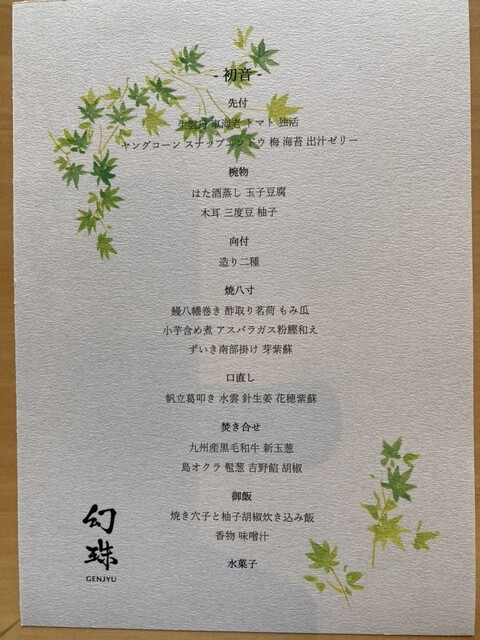 - 初音 -
先付
生雲丹 車海老 トマト 独活
ヤングコーン スナップエンドウ 梅 海苔 出汁ゼリー
椀物
はた酒蒸し 玉子豆腐
木耳 三度豆 柚子
向付
造り二種
焼八寸
鰻八幡巻き 酢取り茗荷 もみ瓜
小芋含め煮 アスパラガス粉鰹和え
ずいき南部掛け 芽紫蘇
口直し
帆立葛叩き 水雲 針生姜 花穂紫蘇
焚き合せ
九州産黒毛和牛 新玉葱
島オクラ 髱葱 吉野餡 胡椒
御飯
焼き穴子と柚子胡椒炊き込み飯
香物 味噌汁
水菓子
幻珠
GENJYU